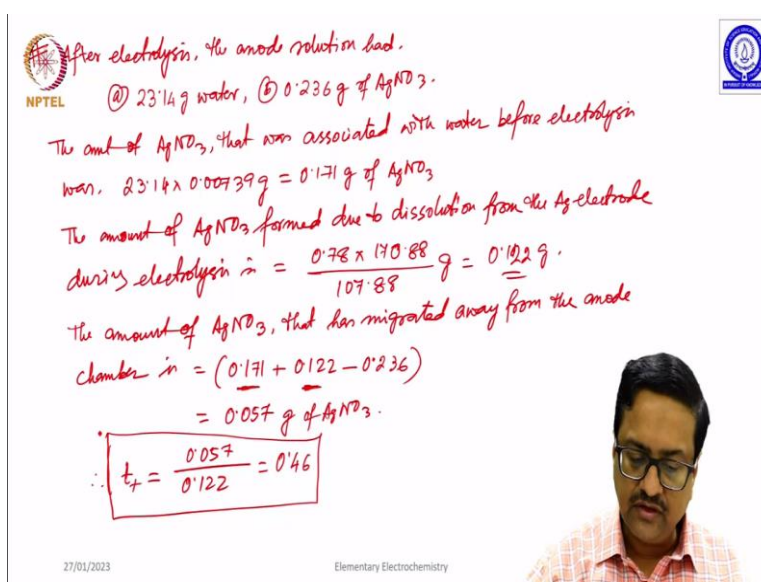 After electrolysis, the anode solution had.
NPTEL
(a) 23.14 g water, (b) 0.236 g of AgNO3.
The amt of AgNO3, that was associated with water before electrolysis
was. 23.14 x 0.00739 g = 0.171 g of AgNO3
The amount of AgNO3 formed due to dissolution from the Ag electrode
during electrolysis is = 0.78 x 170.88 / 107.88 g = 0.122 g.
The amount of AgNO3, that has migrated away from the anode
chamber is = (0.171 + 0.122 - 0.236)
= 0.057 g of AgNO3.
∴ t+ = 0.057 / 0.122 = 0.46
27/01/2023
Elementary Electrochemistry